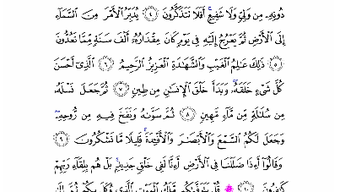 دُونِهِۦ مِن وَلِىٍّ وَلَا شَفِيعٍ ۚ أَفَلَا تَتَذَكَّرُونَ ﴿٤﴾ يُدَبِّرُ ٱلْأَمْرَ مِنَ ٱلسَّمَآءِ
إِلَى ٱلْأَرْضِ ثُمَّ يَعْرُجُ إِلَيْهِ فِى يَوْمٍ كَانَ مِقْدَارُهُۥٓ أَلْفَ سَنَةٍ مِّمَّا تَعُدُّونَ
﴿٥﴾ ذَٰلِكَ عَـٰلِمُ ٱلْغَيْبِ وَٱلشَّهَـٰدَةِ ٱلْعَزِيزُ ٱلرَّحِيمُ ﴿٦﴾ ٱلَّذِىٓ أَحْسَنَ
كُلَّ شَىْءٍ خَلَقَهُۥ ۖ وَبَدَأَ خَلْقَ ٱلْإِنسَـٰنِ مِن طِينٍ ﴿٧﴾ ثُمَّ جَعَلَ نَسْلَهُۥ
مِن سُلَـٰلَةٍ مِّن مَّآءٍ مَّهِينٍ ﴿٨﴾ ثُمَّ سَوَّىٰهُ وَنَفَخَ فِيهِ مِن رُّوحِهِۦ ۖ
وَجَعَلَ لَكُمُ ٱلسَّمْعَ وَٱلْأَبْصَـٰرَ وَٱلْأَفْـِٔدَةَ ۚ قَلِيلًا مَّا تَشْكُرُونَ ﴿٩﴾
وَقَالُوٓا۟ أَءِذَا ضَلَلْنَا فِى ٱلْأَرْضِ أَءِنَّا لَفِى خَلْقٍ جَدِيدٍۭ ۚ بَلْ هُم بِلِقَآءِ رَبِّهِمْ
كَـٰفِرُونَ ﴿١٠﴾ قُلْ يَتَوَفَّىٰكُم مَّلَكُ ٱلْمَوْتِ ٱلَّذِى وُكِّلَ بِكُمْ ثُمَّ إِلَىٰ